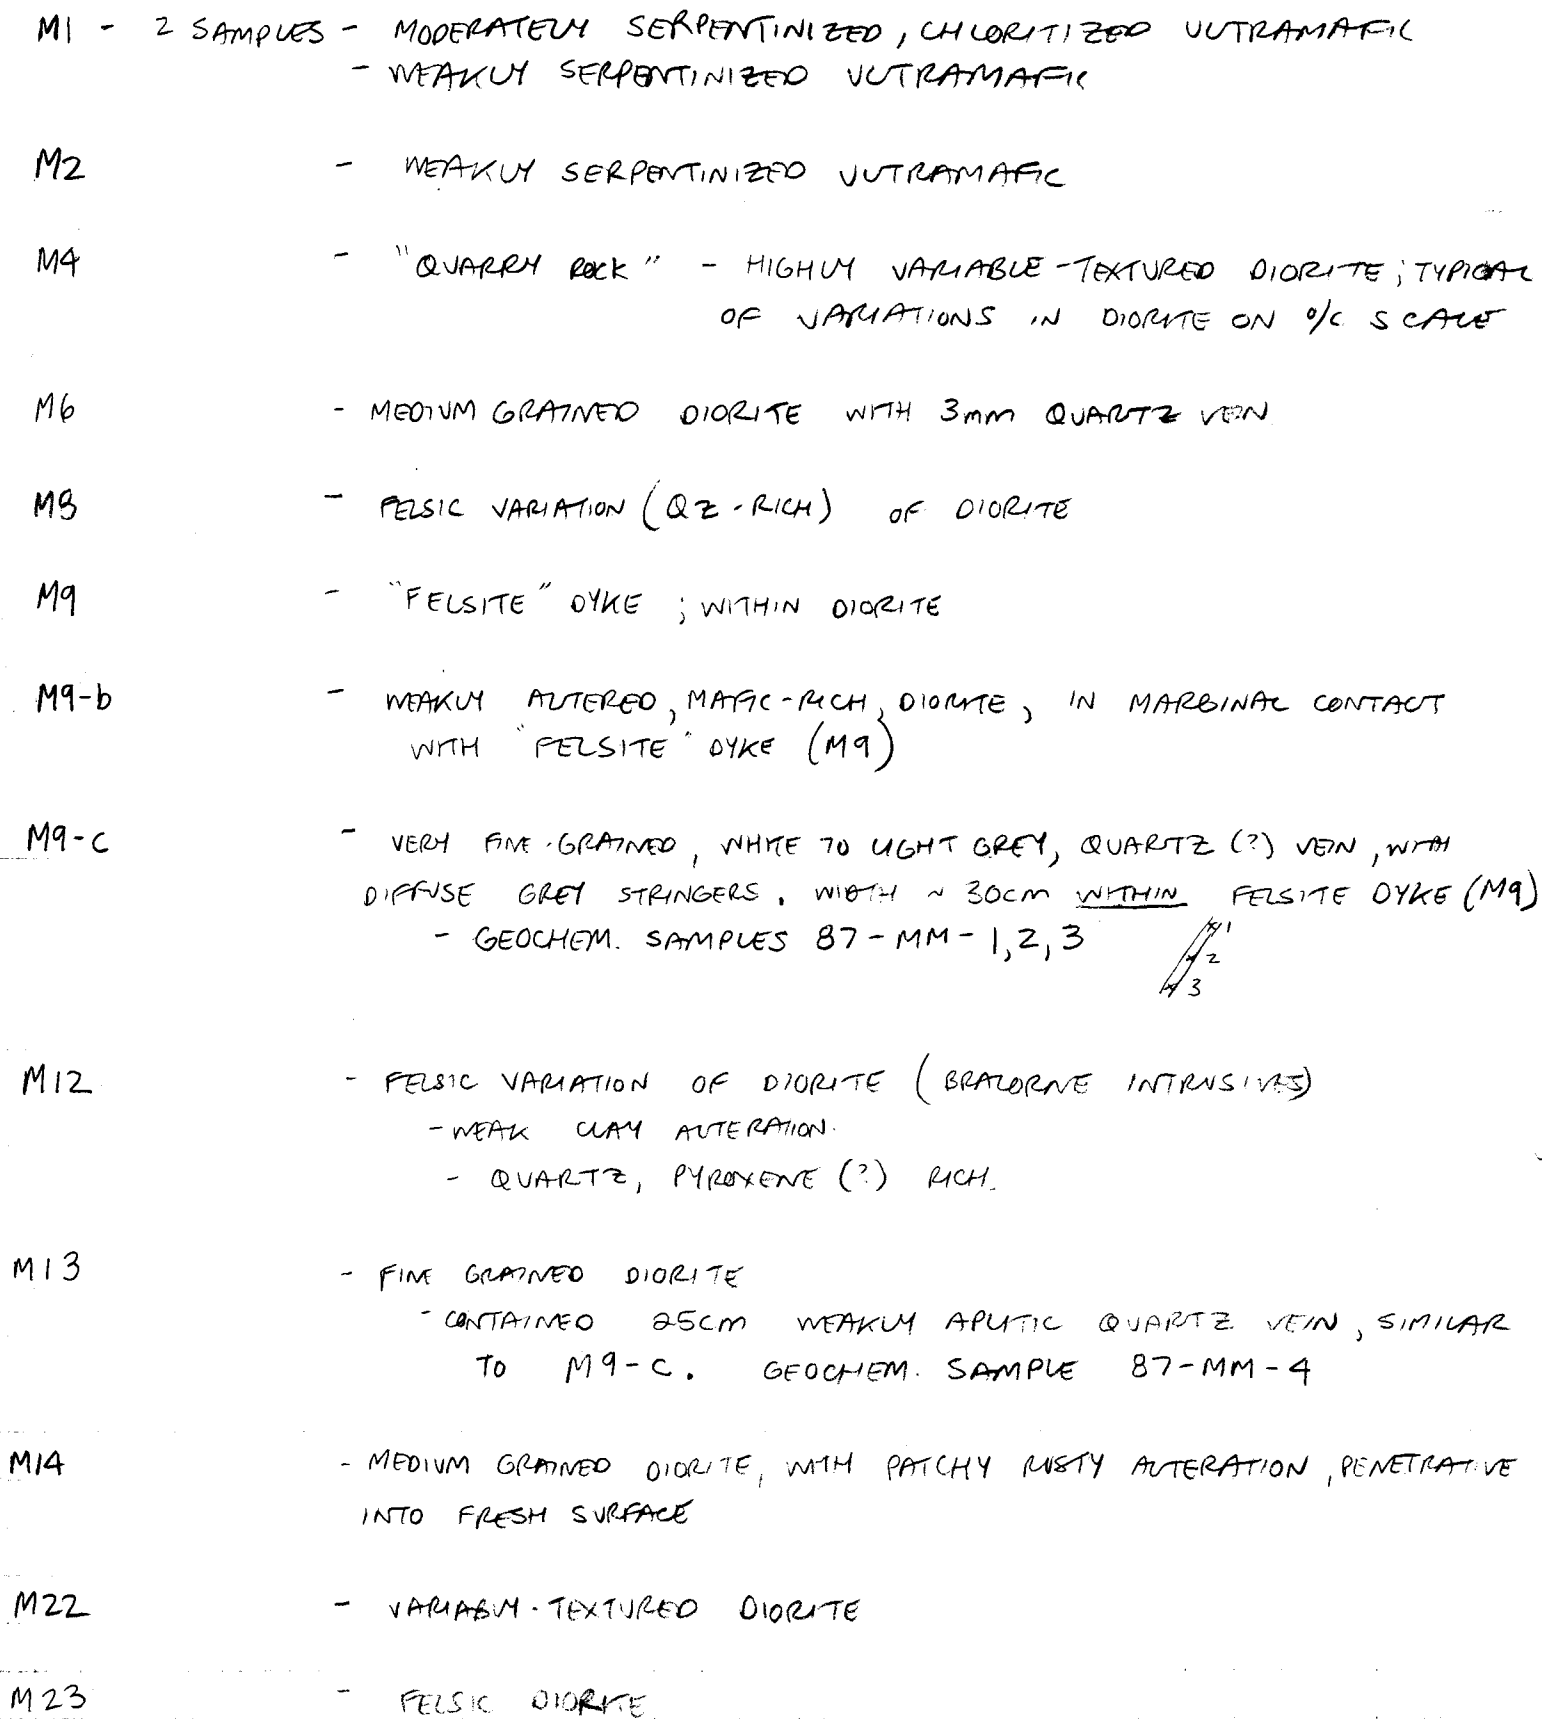 M1 - 2 SAMPLES - MODERATELY SERPENTINIZED, CHLORITIZED ULTRAMAFIC
- WEAKLY SERPENTINIZED ULTRAMAFIC
M2 - WEAKLY SERPENTINIZED ULTRAMAFIC
M4 - "QUARRY ROCK" - HIGHLY VARIABLE-TEXTURED DIORITE; TYPICAL
OF VARIATIONS IN DIORITE ON O/C SCALE
M6 - MEDIUM GRAINED DIORITE WITH 3mm QUARTZ VEIN
M8 - FELSIC VARIATION (QZ-RICH) OF DIORITE
M9 - "FELSITE" DYKE; WITHIN DIORITE
M9-b - WEAKLY ALTERED, MAFIC-RICH, DIORITE, IN MARGINAL CONTACT
WITH "FELSITE" DYKE (M9)
M9-C - VERY FINE-GRAINED, WHITE TO LIGHT GREY, QUARTZ (?) VEIN, WITH
DIFFUSE GREY STRINGERS. WIDTH ~ 30cm WITHIN FELSITE DYKE (M9)
- GEOCHEM. SAMPLES 87-MM-1,2,3
1
2
3
M12 - FELSIC VARIATION OF DIORITE (BRALORNE INTRUSIVES)
- WEAK CLAY ALTERATION.
- QUARTZ, PYROXENE (?) RICH.
M13 - FINE GRAINED DIORITE
- CONTAINED 25cm WEAKLY APLITIC QUARTZ VEIN, SIMILAR
TO M9-C. GEOCHEM. SAMPLE 87-MM-4
M14 - MEDIUM GRAINED DIORITE, WITH PATCHY RUSTY ALTERATION, PENETRATIVE
INTO FRESH SURFACE
M22 - VARIABLY-TEXTURED DIORITE
M23 - FELSIC DIORITE